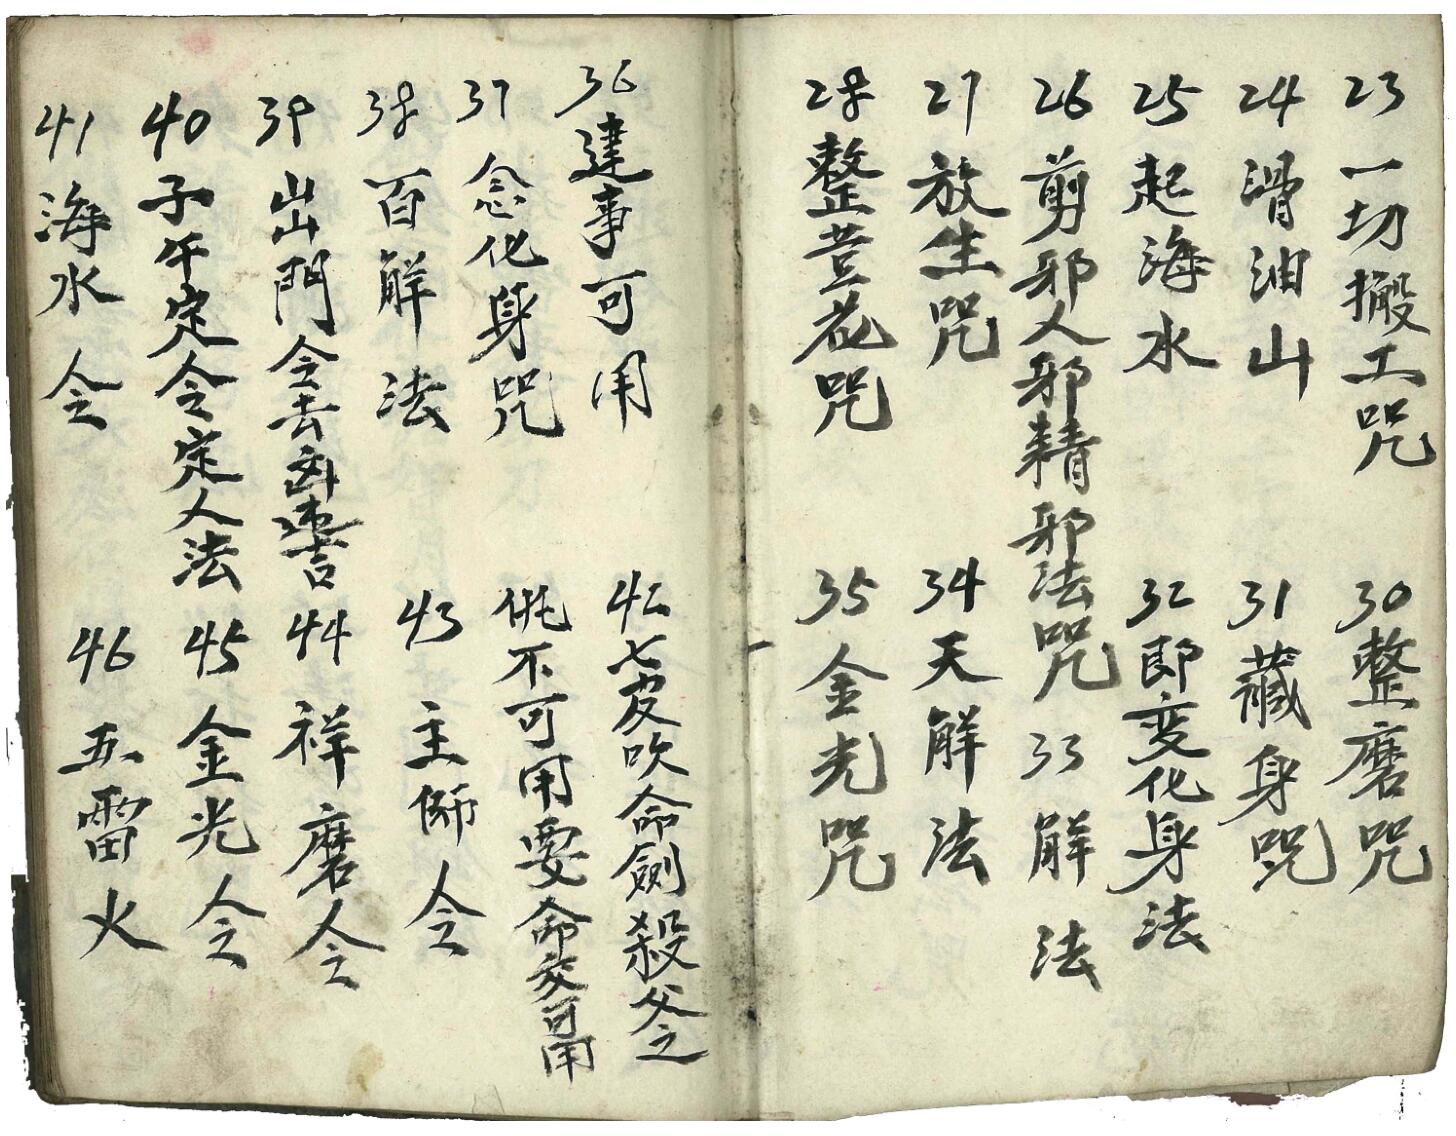 23 一切搬工咒
24 滑油山
25 起海水
26 剪邪人邪精邪法咒
27 放生咒
28 整荳花咒
30 整磨咒
31 藏身咒
32 即变化身法
33 解法
34 天解法
35 金光咒
36 建事可用
37 念化身咒
38 百解法
39 出門令去
40 子午定令定人法
41 海水令
42 七皮吹命劍殺父之
仇不可用要命交可用
43 主師令
44 祥磨令
45 金光令
46 五雷火